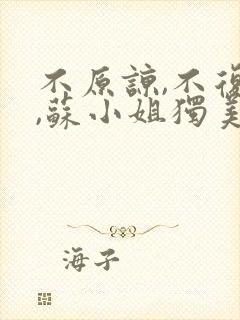 不原諒,不復
,蘇小姐獨美
海子